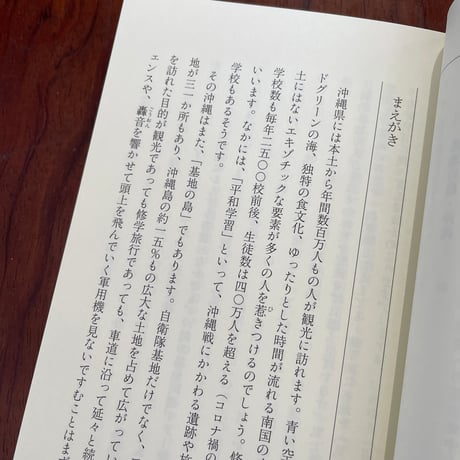 まえがき
沖縄県には本土から年間数百万人もの人が観光に訪れます。青い空
ドグリーンの海、独特の食文化、ゆったりとした時間が流れる南国の
土にはないエキゾチックな要素が多くの人を惹きつけるのでしょう。修
学校数も毎年二五〇〇校前後、生徒数は四〇万人を超える（コロナ禍の
いいます。なかには、「平和学習」といって、沖縄戦にかかわる遺跡や
学校もあるそうです。
その沖縄はまた、「基地の島」でもあります。自衛隊基地だけでなく、
地が三一か所もあり、沖縄島の約一五％もの広大な土地を占めて広がってい
を訪れた目的が観光であっても修学旅行であっても、車道に沿って延々と続
ェンスや、轟音を響かせて頭上を飛んでいく軍用機を見ないですむことはまず